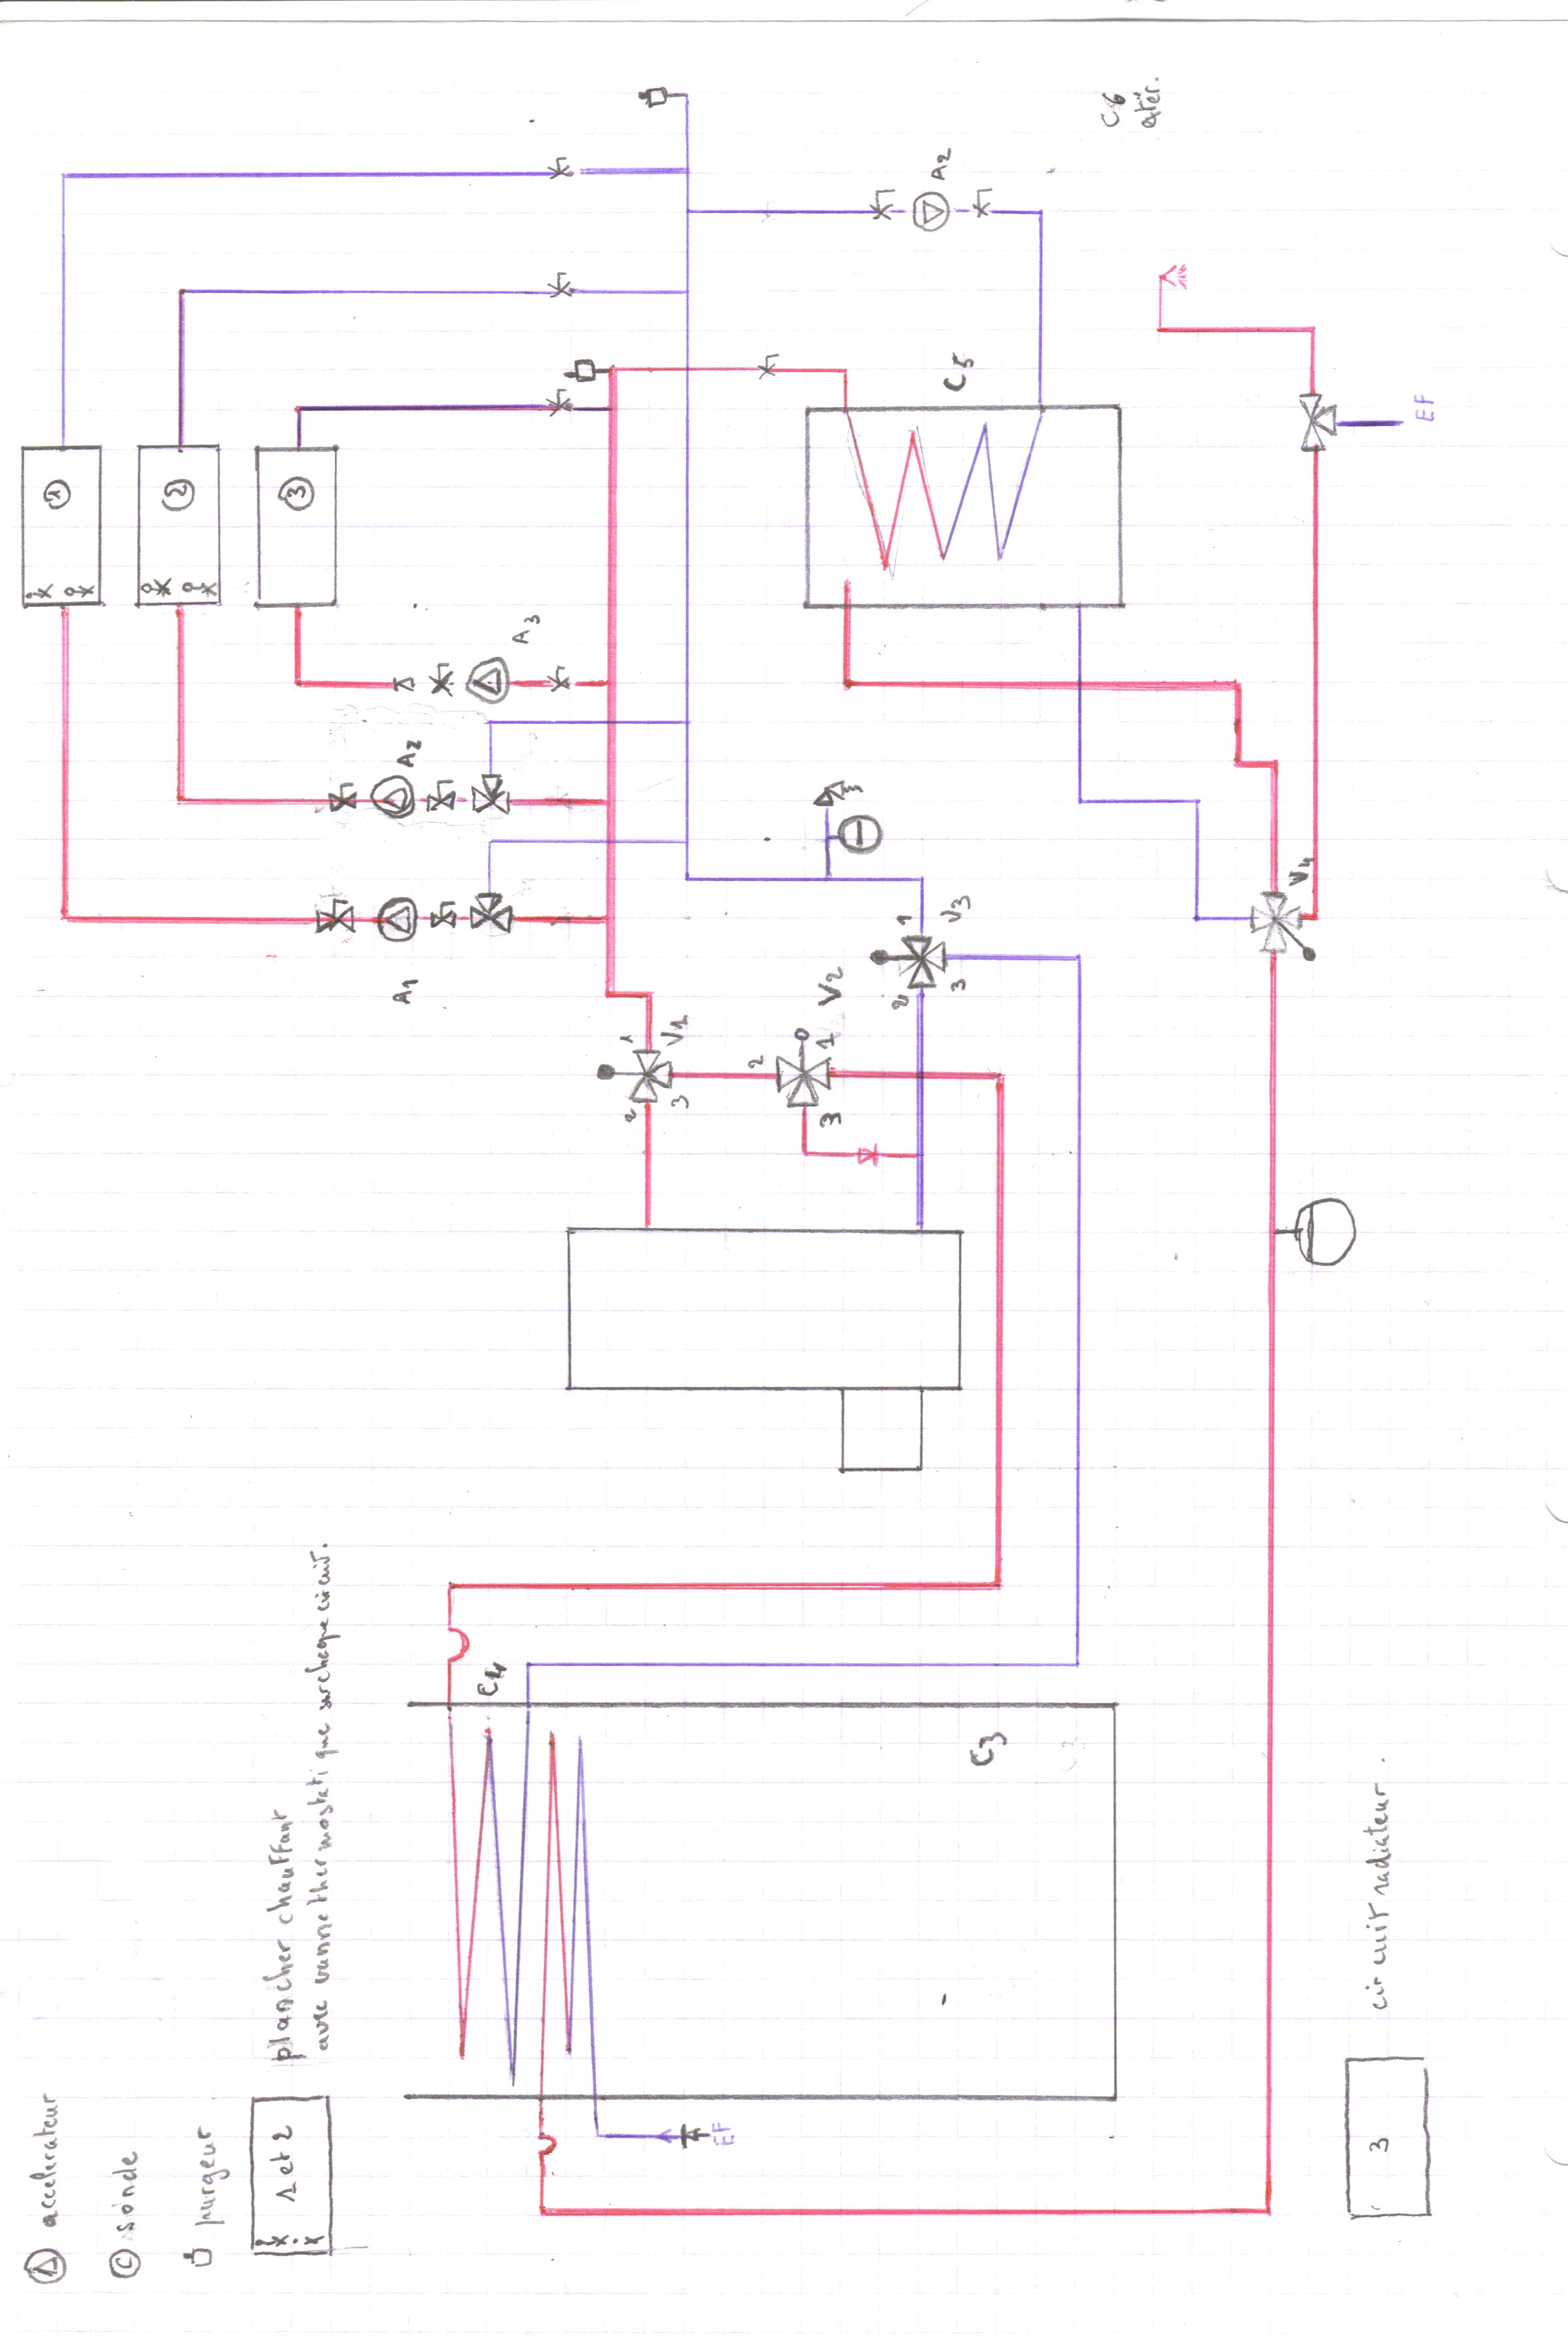 C6
extér.
A2
1
2
3
C5
EF
A3
A2
A1
V4
1
V3
2
3
V2
1
V1
2
3
2
1
3
C4
C3
EF
A accelerateur
C sonde
purgeur
1 et 2
plancher chauffant
avec vanne thermostatique sur chaque circuit.
3
circuit radiateur.